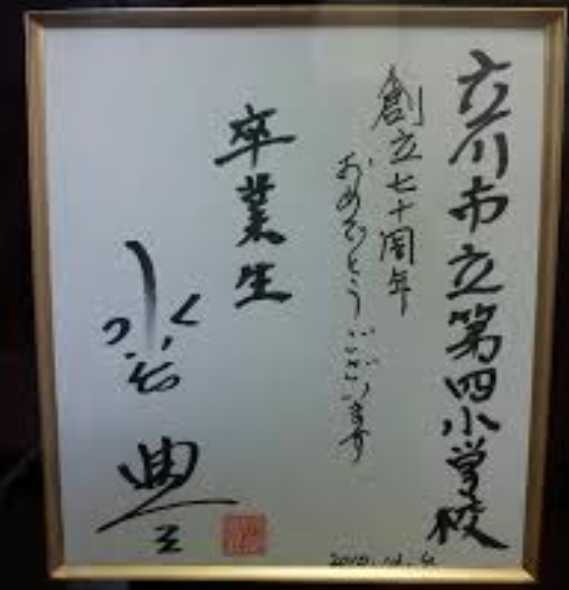 立川市立第四小学校
創立七十周年
おめでとうございます
卒業生